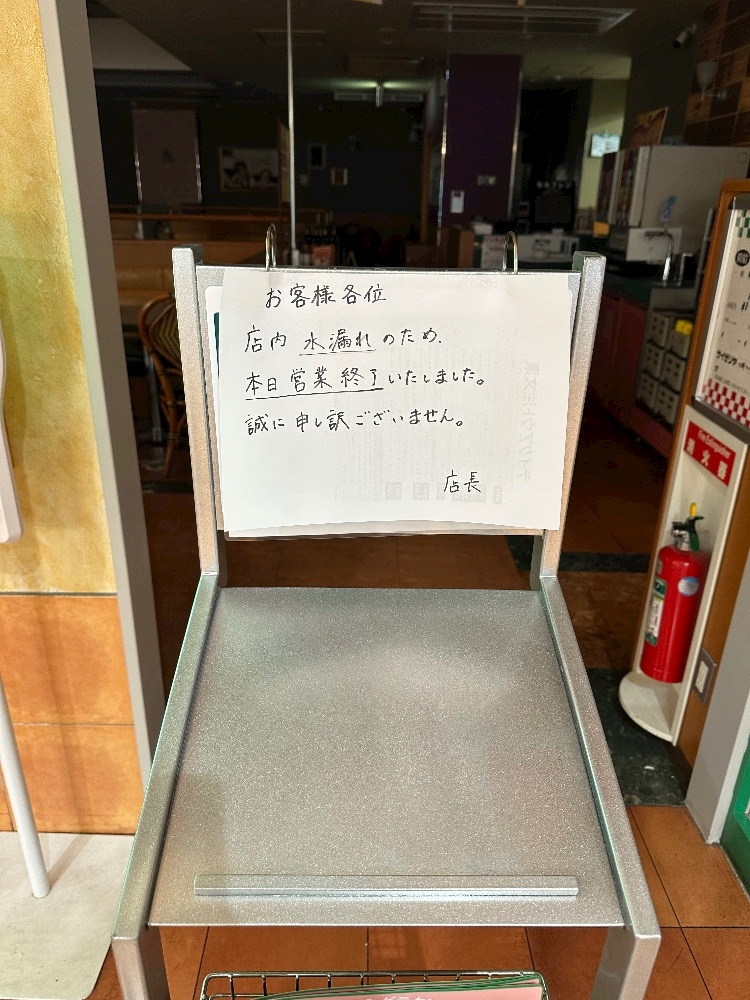 お客様各位
店内 水漏れのため、
本日営業終了いたしました。
誠に申し訳ございません。
店長
Fire Extinguisher
消火器